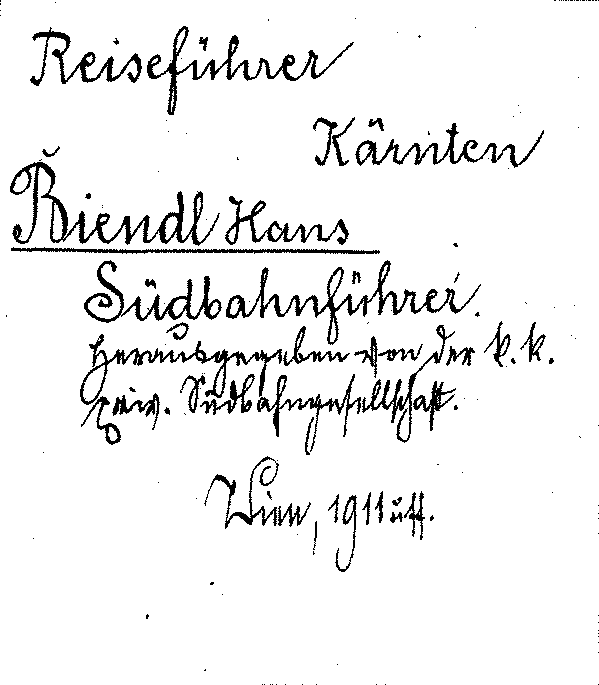 Reiseführer
Kärnten
Biendl Hans
Südbahnführer.
Herausgegeben von der k. k.
priv. Südbahngesellschaft.
Wien, 1911 uff.